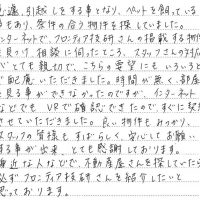 急遽、引越しをする事となり、ペットを飼っている
もあり、条件の合う物件を探していました。
ンターネットで、フロンティア技研さんの掲載する物件
を見つけ、相談に伺ったところ、スタッフさんの対応
とても親切で、こちらの要望にもいろいろと
ご配慮いただきました。時間が無く、部屋
見る事ができなかったのですが、インターネット
などでも VRで確認できたのですぐに契約
させていただきました。良い物件もみつかり、
スタッフの皆様もすばらしく、安心してお願い
する事が出来、とても感謝しております。
身近な人などで、不動産屋さんを探していたら
必ずフロンティア技研さんを紹介したいと
思っております。